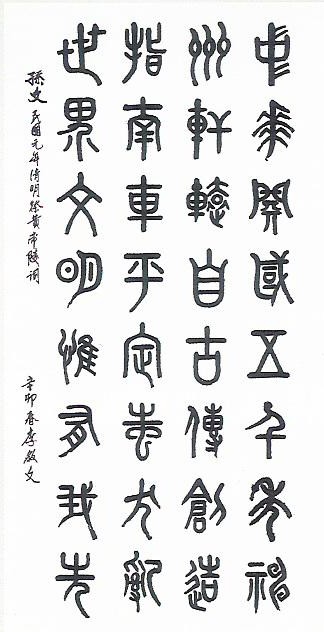 中華開國五千年神
州軒轅自古傳創造
指南車平定蚩尤亂
世界文明惟有我先
孫文民國元年清明祭黃帝陵詞
辛卯春李文